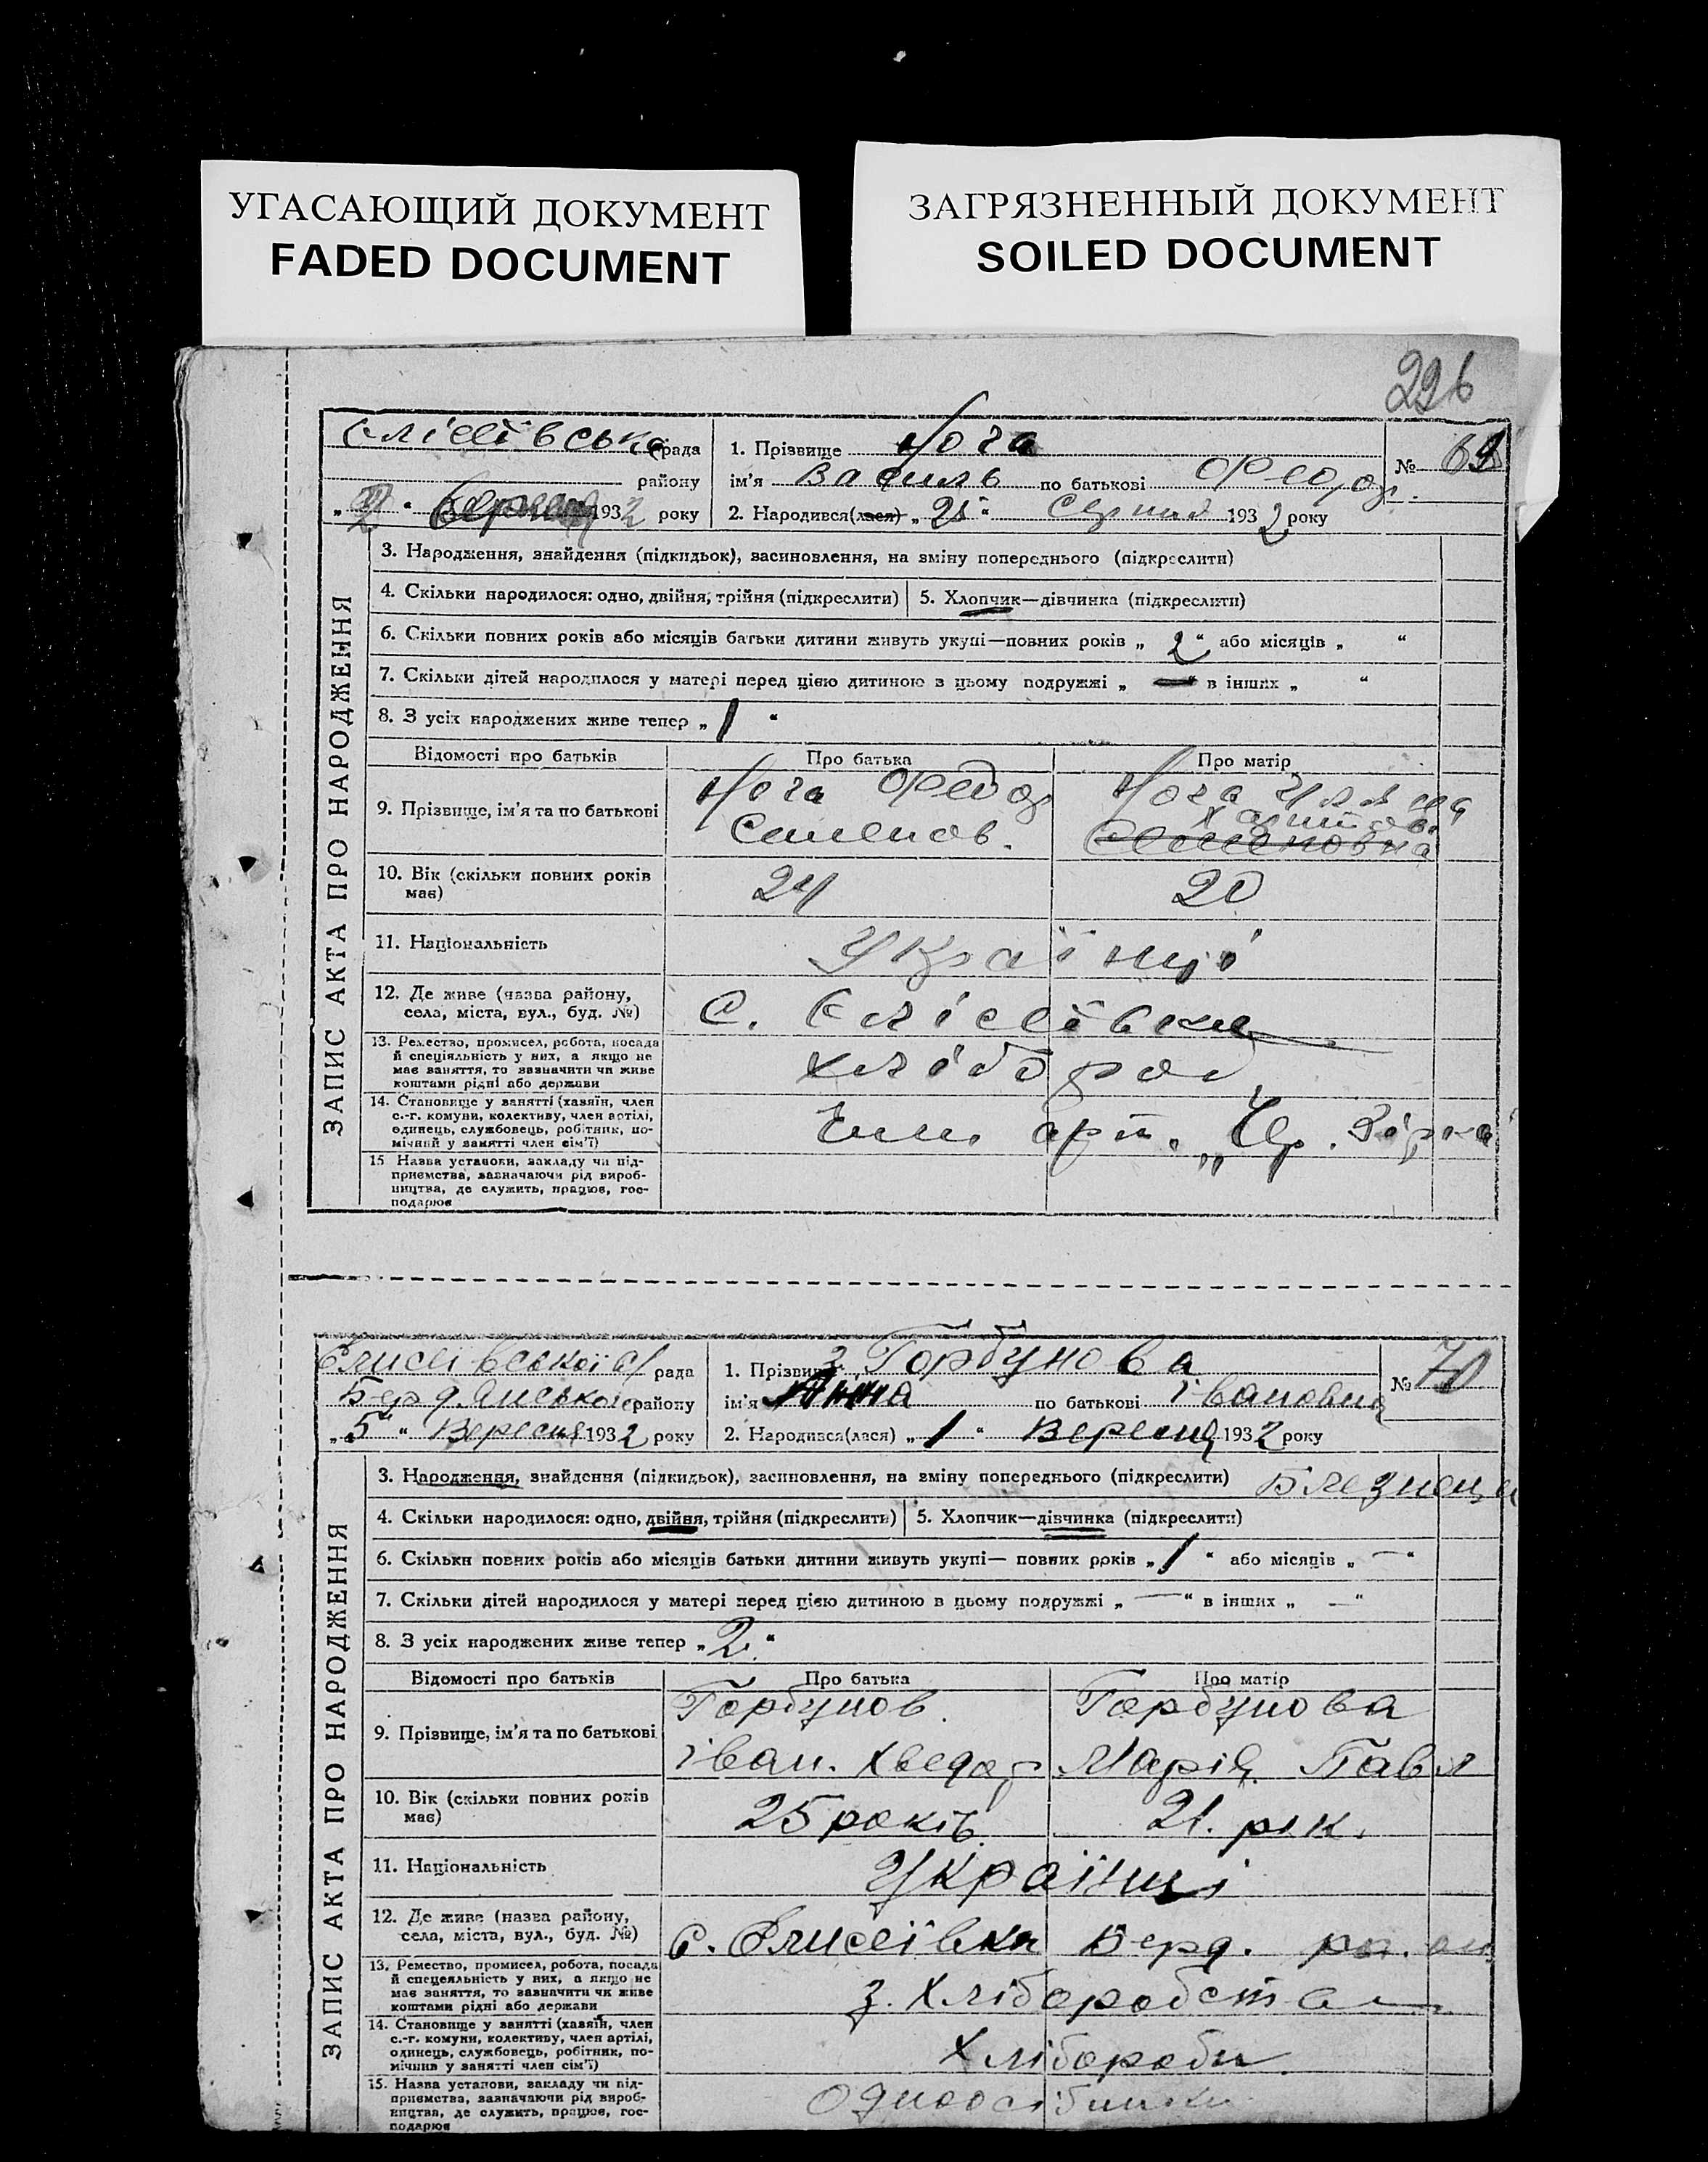 УГАСАЮЩИЙ ДОКУМЕНТ
FADED DOCUMENT
ЗАГРЯЗНЕННЫЙ ДОКУМЕНТ
SOILED DOCUMENT
226
рада
району
1932 року
1. Прізвище Нога
ім'я Василь по батькові Федор.
2. Народився(лася) „ “ Серпня 1932 року
№
ЗАПИС АКТА ПРО НАРОДЖЕННЯ
3. Народження, знайдення (підкидьок), засиновлення, на зміну попереднього (підкреслити)
4. Скільки народилося: одно, двійня, трійня (підкреслити) 5. Хлопчик—дівчинка (підкреслити)
6. Скільки повних років або місяців батьки дитини живуть укупі—повних років „ 2 “ або місяців „ “
7. Скільки дітей народилося у матері перед цією дитиною в цьому подружжі „ — “ в інших „ “
8. З усіх народжених живе тепер „ 1 “
Відомості про батьків Про батька Про матір
9. Прізвище, ім'я та по батькові
Нога Федор
Семенов.
Нога
Семеновна
10. Вік (скільки повних років
має)
24 20
11. Національність
Українці
12. Де живе (назва району,
села, міста, вул., буд. №)
с. Єлісеївка
13. Ремество, промисел, робота, посада
й спеціяльність у них, а якщо не
має заняття, то зазначити чи живе
коштами рідні або держави
хлібороб
14. Становище у занятті (хазяїн, член
с.-г. комуни, колективу, член артілі,
одинець, службовець, робітник, по-
мічний у занятті член сім'ї)
арт. „Чер.
15 Назва установи, закладу чи під-
приємства, зазначаючи рід вироб-
ництва, де служить, працює, гос-
подарює
Єлисеївської с/ рада
Бердянського району
„ 5 “ Вересня 1932 року
1. Прізвище Горбунова
ім'я Анна по батькові Івановна
2. Народився(лася) „ 1 “ Вересня 1932 року
№ 70
ЗАПИС АКТА ПРО НАРОДЖЕННЯ
3. Народження, знайдення (підкидьок), засиновлення, на зміну попереднього (підкреслити) Близнецы
4. Скільки народилося: одно, двійня, трійня (підкреслити) 5. Хлопчик—дівчинка (підкреслити)
6. Скільки повних років або місяців батьки дитини живуть укупі— повних років „ 1 “ або місяців „ — “
7. Скільки дітей народилося у матері перед цією дитиною в цьому подружжі „ — “ в інших „ — “
8. З усіх народжених живе тепер „ 2. “
Відомості про батьків Про батька Про матір
9. Прізвище, ім'я та по батькові
Горбунов.
Іван. Хведор
Горбунова
Марія Павл
10. Вік (скільки повних років
має)
25 років 21. рік.
11. Національність
Українці
12. Де живе (назва району,
села, міста, вул., буд. №)
с. Єлисеївка Берд.
13. Ремество, промисел, робота, посада
й спецеяльність у них, а якщо не
має заняття, то зазначити чи живе
коштами рідні або держави
з. Хліборобства
14. Становище у занятті (хазяїн, член
с.-г. комуни, колективу, член артілі,
одинець, службовець, робітник, по-
мічний у занятті член сім'ї)
Хлібороби
15. Назва установи, закладу чи під-
приємства, зазначаючи рід вироб-
ництва, де служить, працює, гос-
подарює
Одноосібники